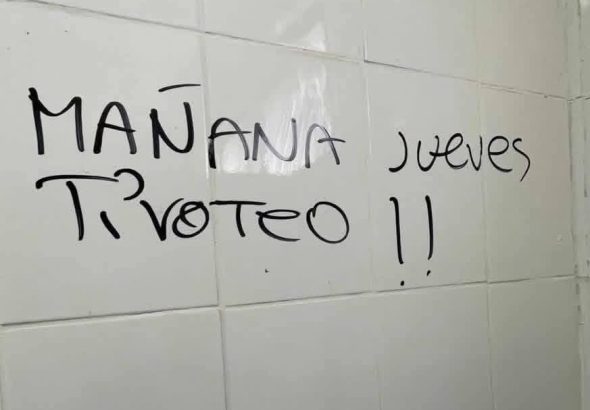 MAÑANA Jueves
TiVOTEO !!